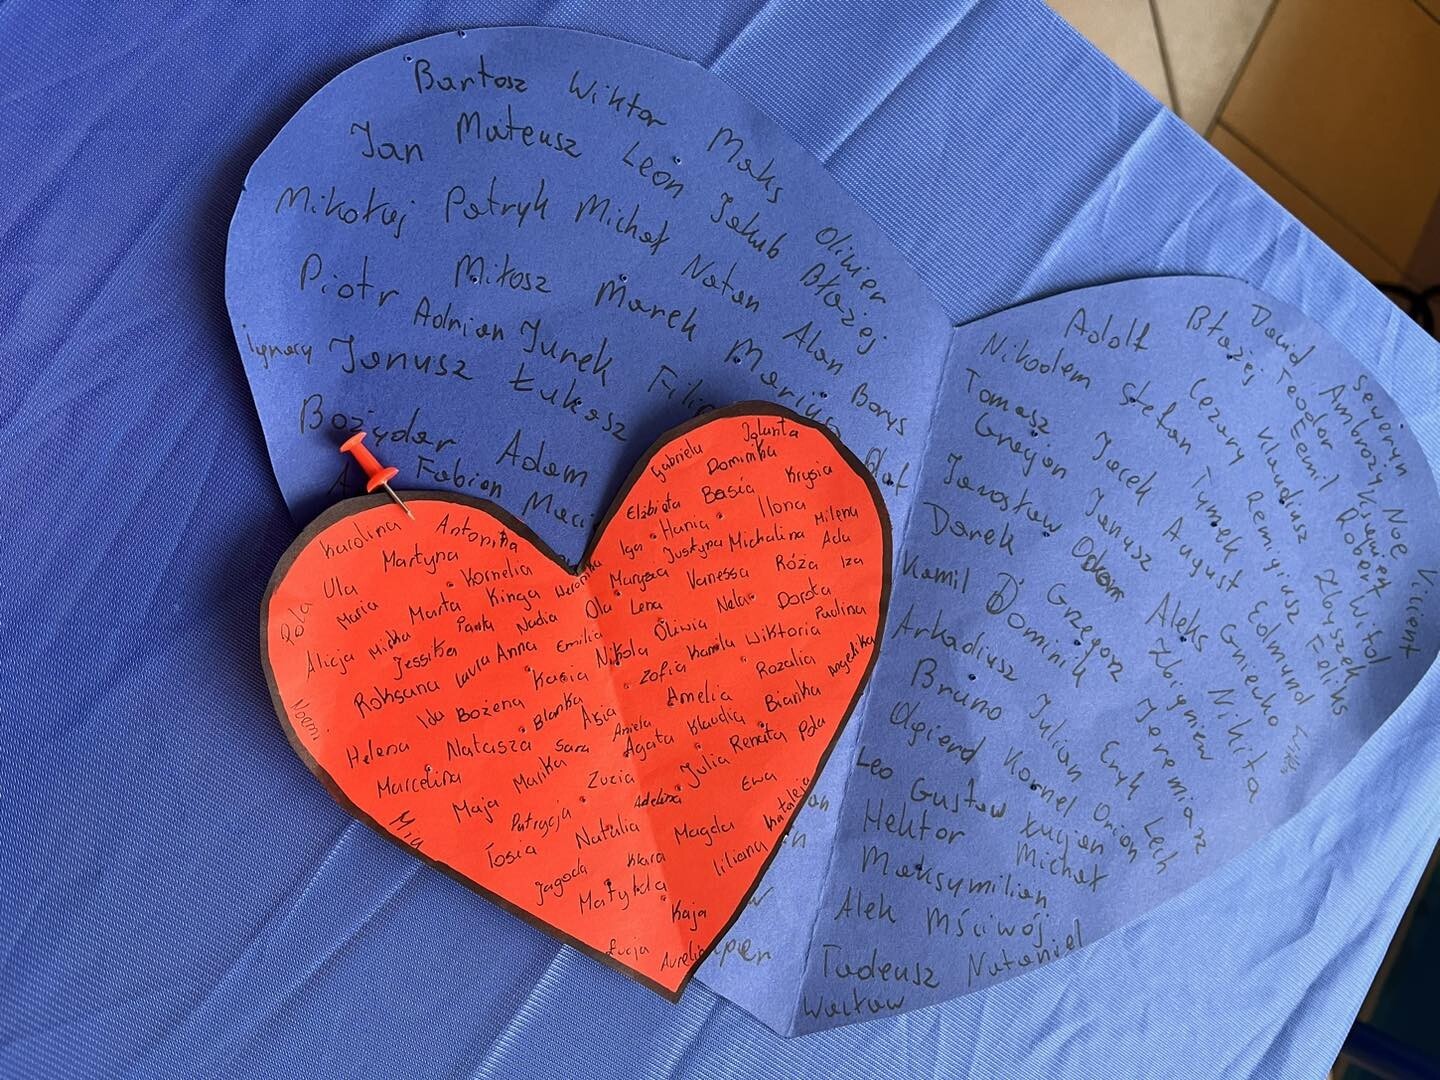 Bartosz Wiktor Maks Oliwier
Jan Mateusz Leon Jakub Błażej
Mikołaj Patryk Michał Natan Alan Borys
Piotr Miłosz Marek Mariusz
Ignacy Adrian Jurek Filip Olaf
Janusz Łukasz
Bożydar Adam
Fabian
Adolf Błażej Dawid Seweryn Noe
Nikodem Stefan Cezary Teodor Ambroży Ksawery Vincent
Tomasz Jacek Tymek Klaudiusz Eemil Robert Witold
Gracjan Janusz August Remigiusz Zbyszek
Jarosław Adam Aleks Gniecko Edmund Feliks
Darek Grzegorz Zbigniew Nikita
Kamil Dominik Jeremiasz
Arkadiusz Julian Eryk Lech
Bruno Kornel Orion
Olgierd Lucjan Michał
Leo Gustaw
Hektor
Maksymilian
Alek Mściwój
Tadeusz Nataniel
Wacław
Gabriela Jolanta
Elżbieta Dominika
Karolina Antonina Iga Hania Basia Krysia
Ula Martyna Justyna Michalina Ilona Milena
Pola Maria Kornelia Weronika Marysia Vanessa Róża Ada
Alicja Milka Marta Kinga Ola Lena Nela Dorota Iza
Jessika Nadia Emilia Oliwia Paulina
Roksana Laura Anna Nikola Zofia Kamila Wiktoria
Noemi Ida Bożena Kasia Amelia Rozalia Angelika
Helena Natasza Blanka Asia Aniela Klaudia Bianka
Marcelina Sara Agata Renata Pola
Maja Marika Zuzia Julia
Mia Patrycja Adelina Ewa
Tosia Natalia Magda Kataleja
Jagoda Klara Liliana
Matylda
Kaja
Łucja Aurelia